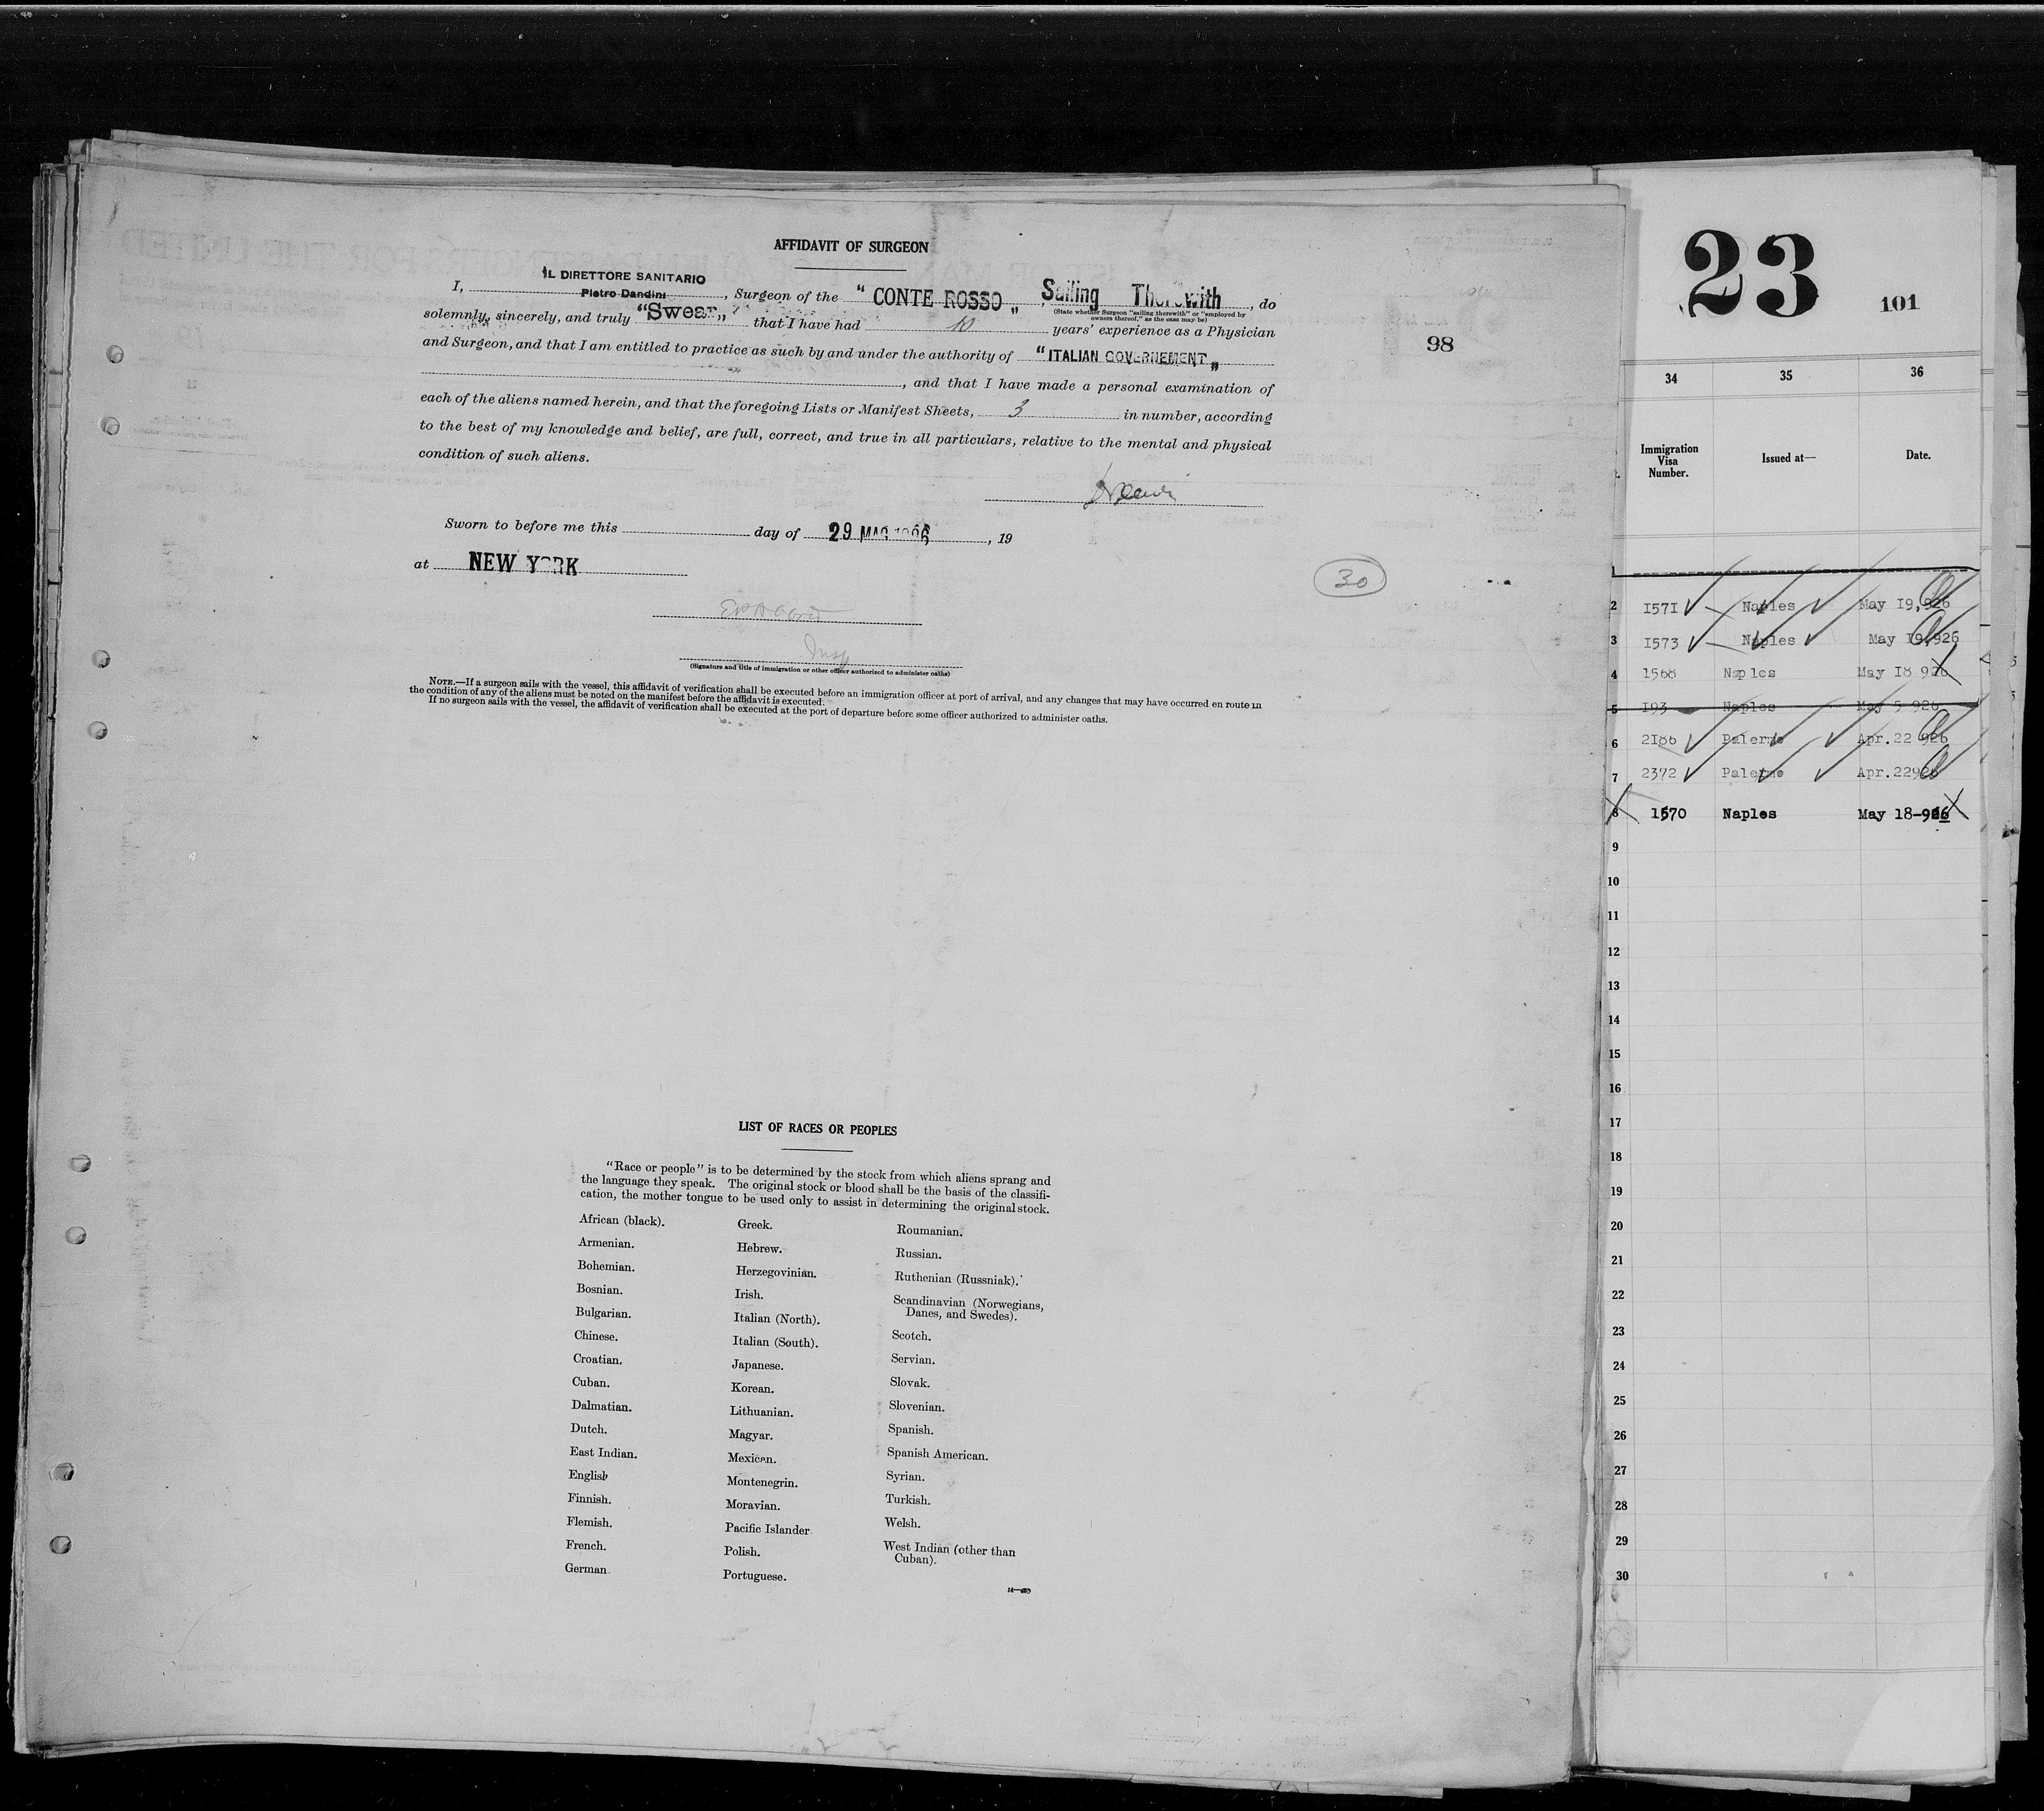 AFFIDAVIT OF SURGEON
IL DIRETTORE SANITARIO
I, Pietro Dandini, Surgeon of the "CONTE ROSSO„ Sailing Therewith, do
(State whether Surgeon "sailing therewith" or "employed by
owners thereof," as the case may be)
solemnly, sincerely, and truly "Swear„ that I have had 10 years' experience as a Physician
and Surgeon, and that I am entitled to practice as such by and under the authority of "ITALIAN GOVERNEMENT„
, and that I have made a personal examination of
each of the aliens named herein, and that the foregoing Lists or Manifest Sheets, 3 in number, according
to the best of my knowledge and belief, are full, correct, and true in all particulars, relative to the mental and physical
condition of such aliens.
Sworn to before me this day of 29 MAG 1926, 19
at NEW YORK
30
Insp
(Signature and title of immigration or other officer authorized to administer oaths)
NOTE.—If a surgeon sails with the vessel, this affidavit of verification shall be executed before an immigration officer at port of arrival, and any changes that may have occurred en route in
the condition of any of the aliens must be noted on the manifest before the affidavit is executed.
If no surgeon sails with the vessel, the affidavit of verification shall be executed at the port of departure before some officer authorized to administer oaths.
98
LIST OF RACES OR PEOPLES
"Race or people" is to be determined by the stock from which aliens sprang and
the language they speak. The original stock or blood shall be the basis of the classifi-
cation, the mother tongue to be used only to assist in determining the original stock.
African (black).
Armenian.
Bohemian.
Bosnian.
Bulgarian.
Chinese.
Croatian.
Cuban.
Dalmatian.
Dutch.
East Indian.
English
Finnish.
Flemish.
French.
German.
Greek.
Hebrew.
Herzegovinian.
Irish.
Italian (North).
Italian (South).
Japanese.
Korean.
Lithuanian.
Magyar.
Mexican.
Montenegrin.
Moravian.
Pacific Islander.
Polish.
Portuguese.
Roumanian.
Russian.
Ruthenian (Russniak).
Scandinavian (Norwegians,
Danes, and Swedes).
Scotch.
Servian.
Slovak.
Slovenian.
Spanish.
Spanish American.
Syrian.
Turkish.
Welsh.
West Indian (other than
Cuban).
23
101
34 35 36
Immigration
Visa
Number.
Issued at—
Date.
1
2 1571 Naples May 19,926
3 1573 Naples May 19,926
4 1568 Naples May 18 926
5 193 Naples May 5 926
6 2186 Palermo Apr.22 926
7 2372 Palermo Apr.22926
8 1570 Naples May 18-926
9
10
11
12
13
14
15
16
17
18
19
20
21
22
23
24
25
26
27
28
29
30